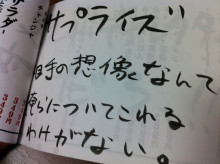 サプライズ
相手の想像なんて
俺らについてこれる
わけがない。